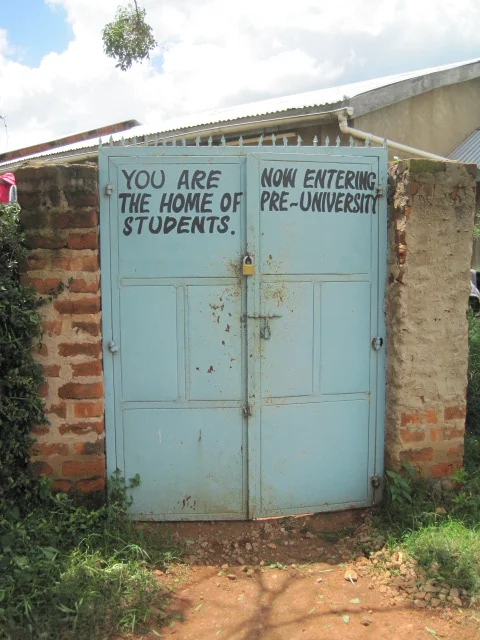 YOU ARE NOW ENTERING
THE HOME OF PRE-UNIVERSITY
STUDENTS.